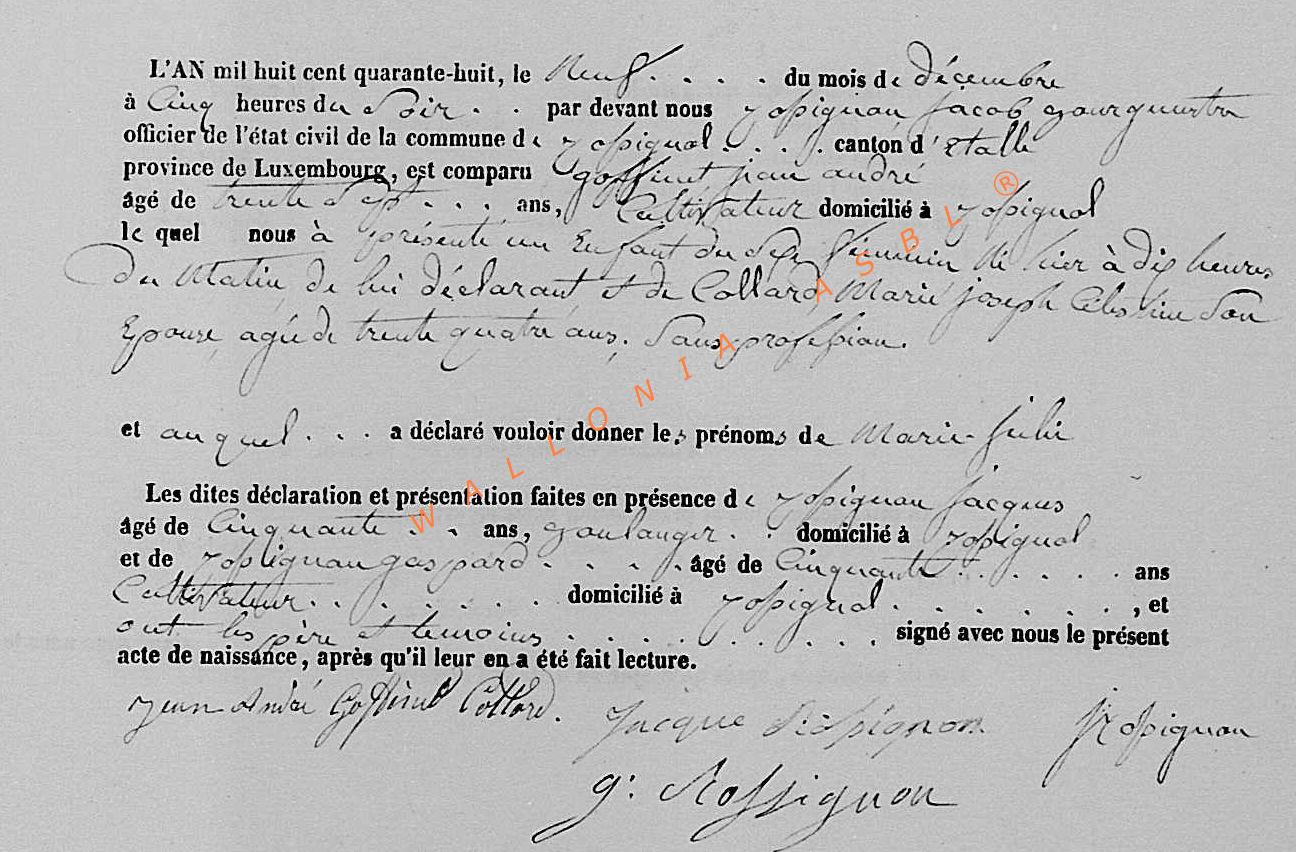 L'AN mil huit cent quarante-huit, le Neuf . . . . du mois de décembre
à Cinq heures du Soir . . par devant nous Rossignon Jacob Bourguemestre
officier de l'état civil de la commune de Rossignol . . . . canton d'Etalle
province de Luxembourg, est comparu Goffinet jean andré
âgé de trente Sept . . . ans, Cultivateur domicilié à Rossignol
le quel nous à présenté un Enfant du Sexe féminin né hier à dix heures
Du Matin de lui déclarant et de Collard Marie joseph Célestine Son
Epouse, agée de trente quatre ans, Sans profession.
et auquel . . . a déclaré vouloir donner les prénoms de Marie-Julie
Les dites déclaration et présentation faites en présence de Rossignon Jacques
âgé de Cinquante . . ans, Boulanger . . domicilié à Rossignol
et de Rossignon gaspard . . . . . âgé de Cinquante . . . . . . ans
Cultivateur . . . . . . . domicilié à Rossignol . . . . . . . , et
ont les père et temoins . . . . . . . . . signé avec nous le présent
acte de naissance, après qu'il leur en a été fait lecture.
Jean André Goffinet Collard. Jacque Rossignon. J Rossignon
g: Rossignon
WALLONIA ASBL ®